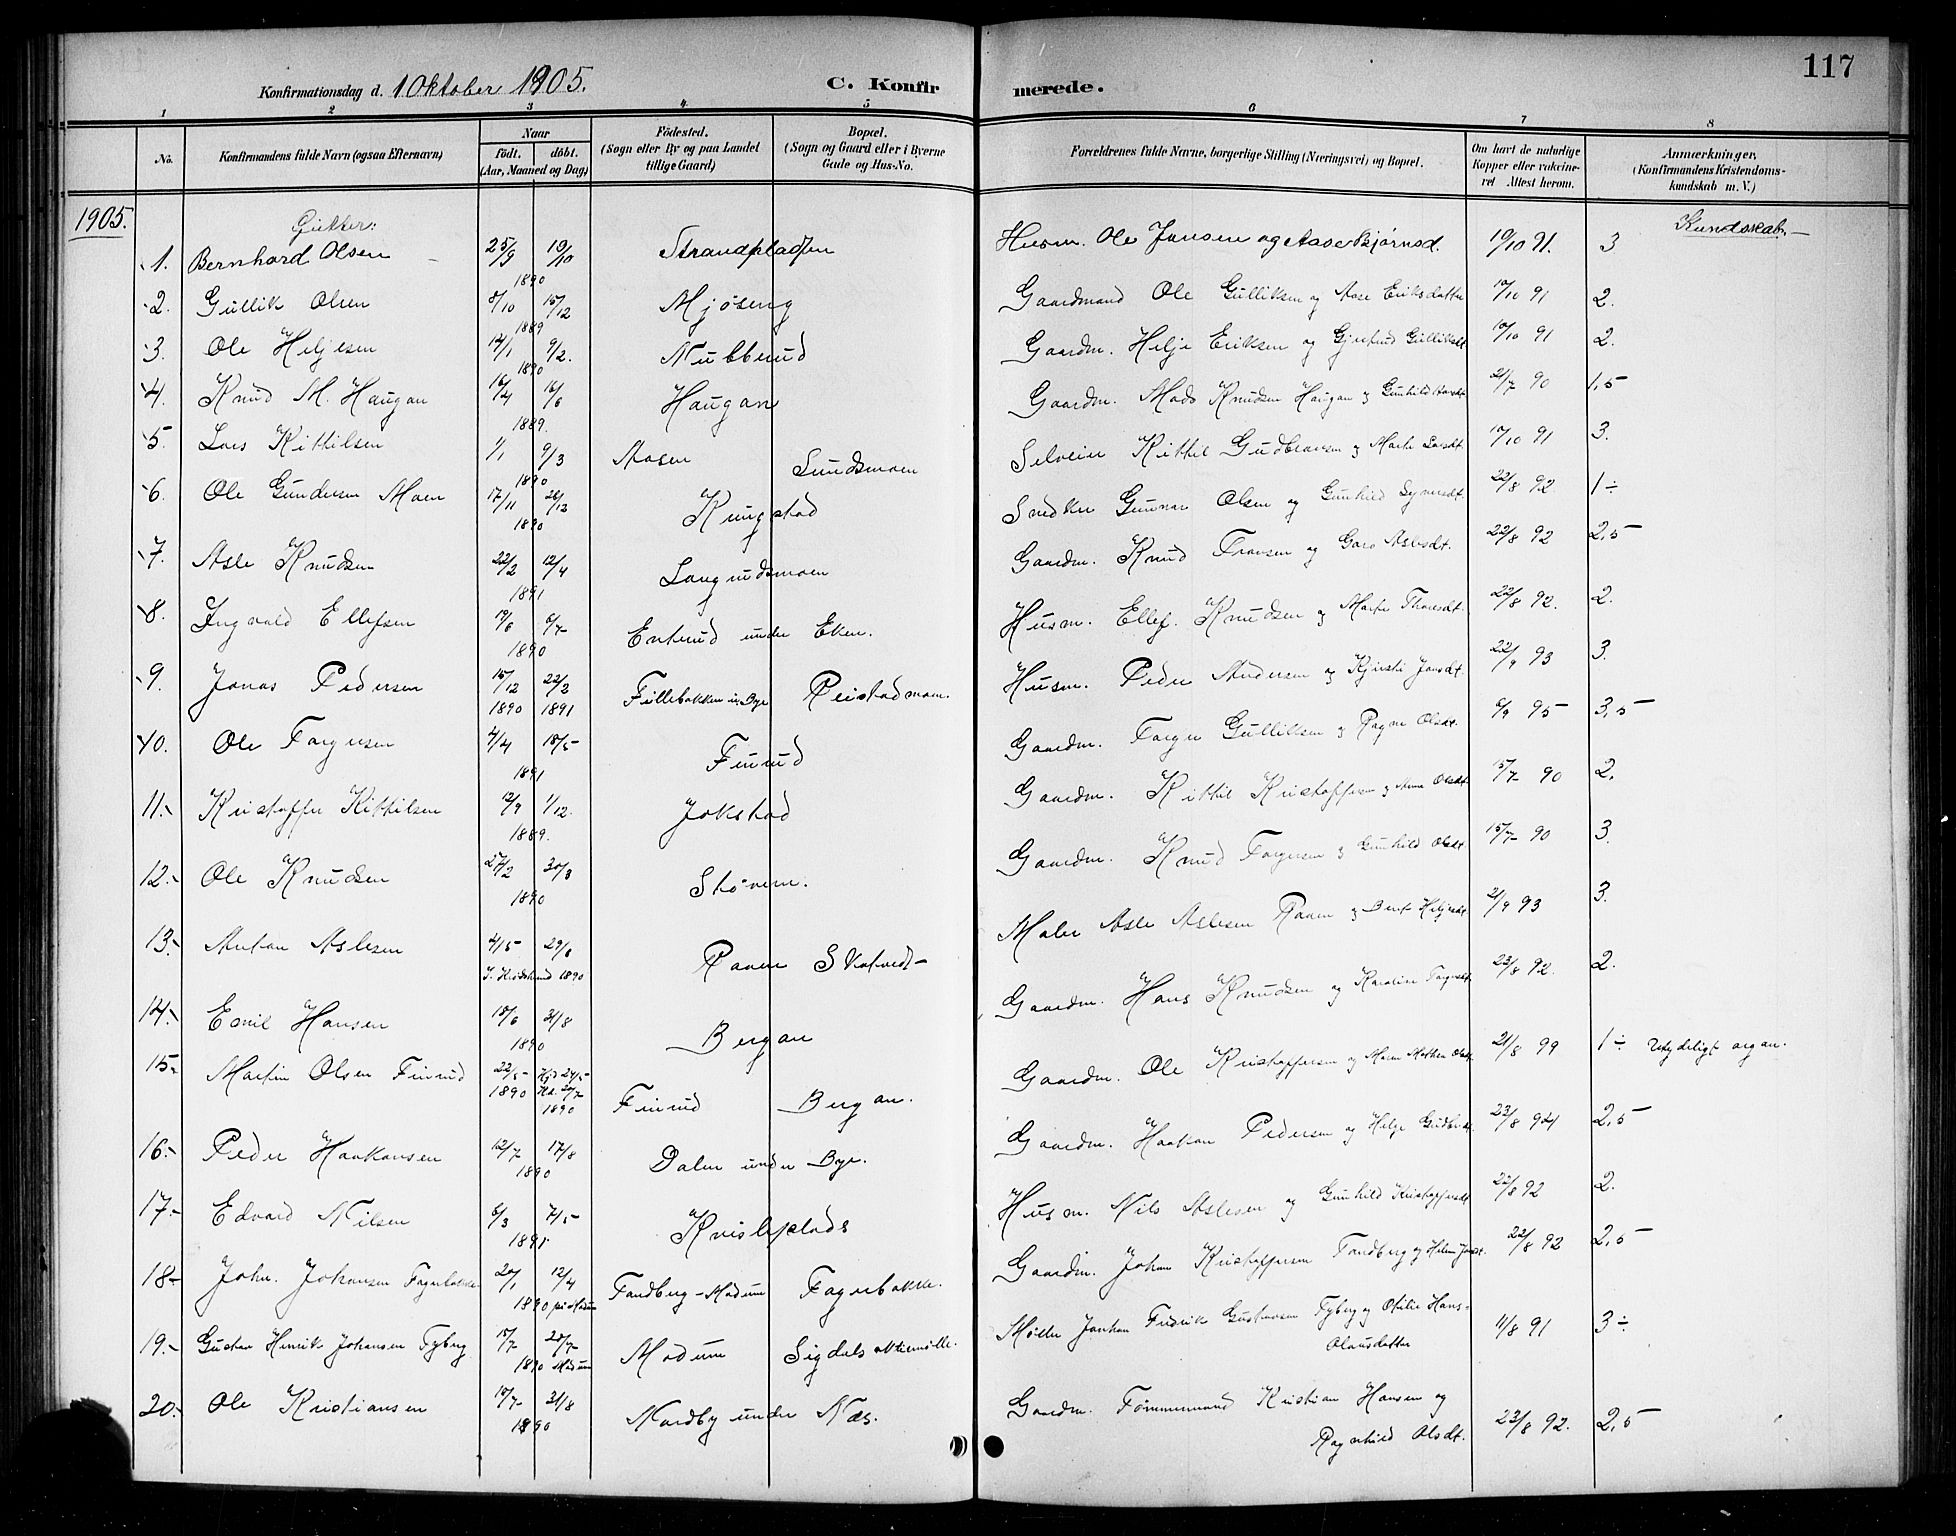 117
Konfirmationsdag d. 1 Oktober 1905. C. Konfirmerede.
1 2 3 4 5 6 7 8
No. Konfirmandens fulde Navn (ogsaa Efternavn) Naar født. døbt. (Aar, Maaned og Dag) Fødested. (Sogn eller By og paa Landet tillige Gaard) Bopæl. (Sogn og Gaard eller i Byerne Gade og Hus-No. Forældrenes fulde Navne, borgerlige Stilling (Næringsvei) og Bopæl. Om havt de naturlige Kopper eller vaccineret Attest herom. Anmærkninger, (Konfirmandens Kristendomskundskab m. V.)
1905. Gutter: Kundskab.
1. Bernhard Olsen 25/9 19/10 1890 Strandpladsen Husm. Ole Jansen og Aase Bjørnsd. 19/10 91. 3
2. Gullik Olsen 8/10 15/12 1889 Mjøseng Gaardmand Ole Gulliksen og Aase Eriksdatter 19/10 91 2.
3. Ole Heljesen 14/1 9/2. 1890 Nubberud Gaardm. Helje Eriksen og Gjertrud Gulliksdt 19/10 91 2.
4. Knud M. Haugan 16/4 16/6 1889. Haugan Gaardm. Mads Knudsen Haugan og Gunhild 21/7 90 1,5
5. Lars Kittilsen 1/1 9/3 1890 Aasen Sundsmoen Selveier Kittil Gudbransen og Marte Larsdt. 19/10 91 3.
6. Ole Gundersen Moen 17/11 26/12 1890 Kringstad Snedker Gunnar Olsen og Gunhild Synersdt. 22/8 92 1÷
7. Asle Knudsen 22/2 12/4 1891 Langrudsmoen Gaardm. Knud Fransen og Goro Aslesdt. 22/8 92 2,5
8. Ingvald Ellefsen 19/6 6/7 1890 Enterud under Eken. Husm. Ellef. Knudsen og Marte Thoresdt. 22/8 92. 2.
9. Jonas Pedersen 15/12 1890 22/2 1891 Fillebakken u. Bye Reistadmoen. Husm. Peder Andersen og Kjersti Jonsdt. 22/9 93 3.
10. Ole Torgersen 4/4 18/5 1891 Finrud Gaardm. Torger Gulliksen og Ragne Olsdt. 9/9 95 3,5
11. Kristoffer Kittilsen 12/9 1/12. 1889. Jokstad Gaardm. Kittil Kristoffersen og Anne Olsdt 15/7 90 2.
12. Ole Knudsen 27/2 30/3 1890 Støvern. Gaardm. Knud Torgersen og Gunhild Olsdt 15/7 90 3.
13. Anton Aslesen 4/5 29/6 I. Krødsherred 1890 Raaen Skatvedt Maler Asle Aslesen Raaen og Berit Heljesdt 21/9 93 3.
14. Emil Hansen 18/6 31/8 1890 Bergan Gaardm. Hans Knudsen og Karoline Torgersdt. 23/8 92. 2.
15. Martin Olsen Finrud 22/5 1890 Hjd 24/5 Kd. 20/7 1890 Finrud Bergan. Gaardm. Ole Kristoffersen og Maren Mathea Olsdt 21/8 99 1÷ Utydeligt organ.
16. Peder Haakansen 12/7 17/8 1890 Dalen under Bye. Gaardm. Haakan Pedersen og Helge Gudbrdt. 23/8 94 2,5
17. Edvard Nilsen 6/3 7/5 1891 Kvisleplads Husm. Nils Aslesen og Gunhild Kristoffersdt 22/8 92 2.
18. John. Johansen Fagerbakke 20/1 12/4 1890 på Modum Tandberg - Modum Fagerbakke. Gaardm. Johan Kristoffersen Tandberg og Helene Jansdt. 22/8 92 2,5
19. Gustav Henrik Johansen Fyberg 15/7 20/7 1890 Modum Modum Sigdals aktiemølle. Møller Johan Fredrik Gustavsen Fyberg og Otilie Hans-
Olausdatter 11/8 91 3÷
20. Ole Kristiansen 10/7 31/8 1890 Nordby under Næs. Gaardm. Tømmermand Kristian Hansen og
Ragnhild Olsdt. 23/8 92. 2,5